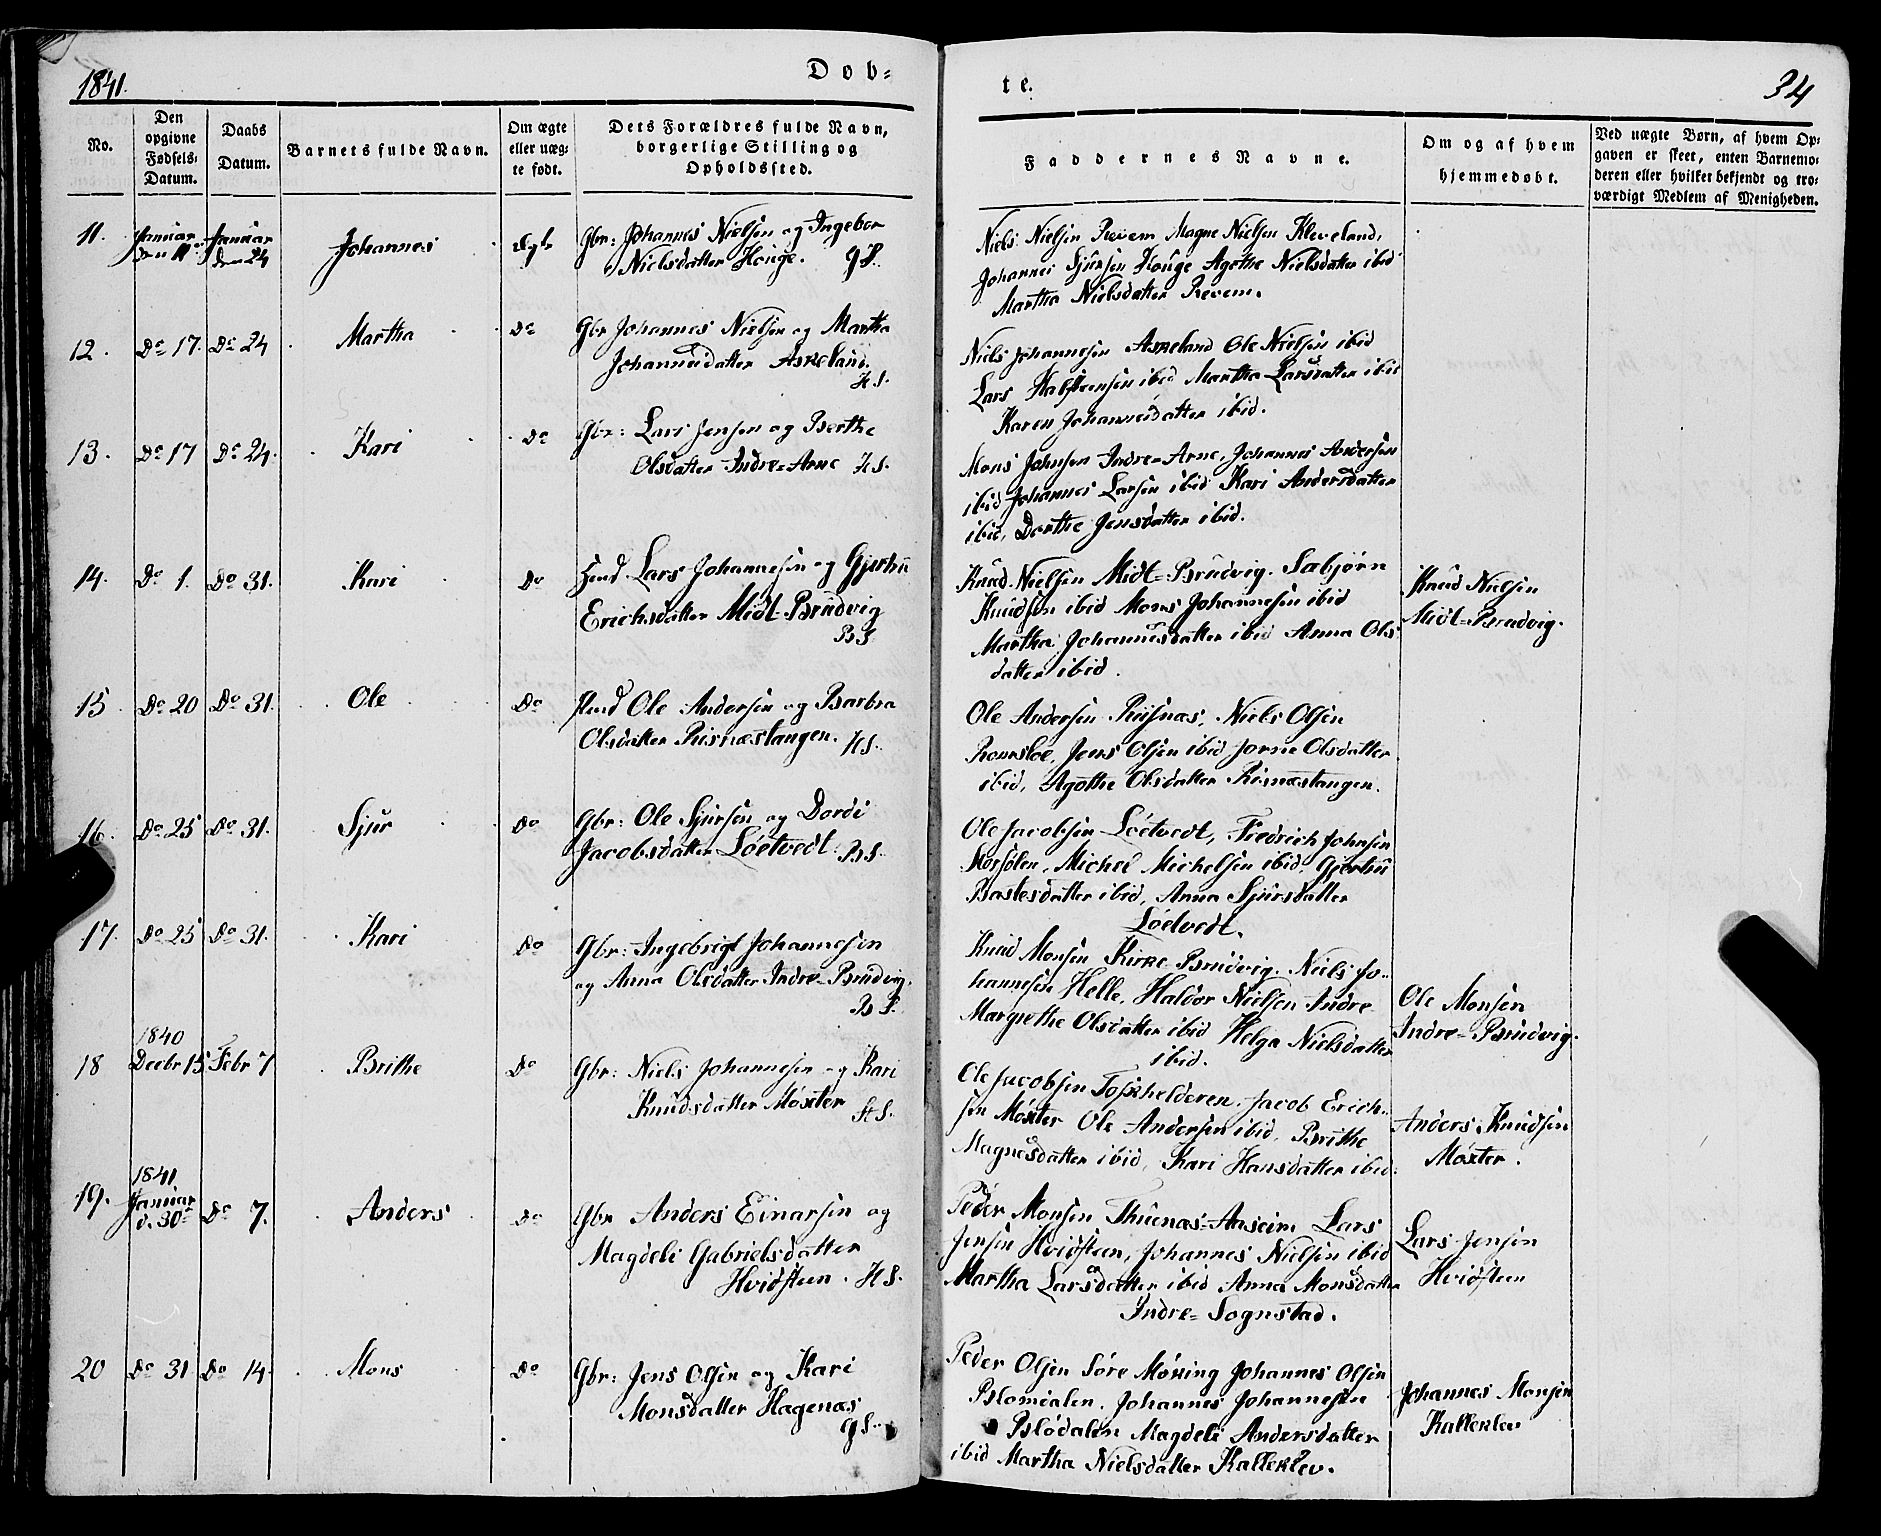 1841.
Døb-
te.
34
No.
Den
opgivne
Fødsels-
Datum.
Daabs
Datum.
Barnets fulde Navn.
Om ægte
eller uæg-
te født.
Dets Forældres fulde Navn,
borgerlige Stilling og
Opholdssted.
Faddernes Navne.
Om og af hvem
hjemmedøbt.
Ved uægte Børn, af hvem Op-
gaven er skeet, enten Barnemo-
deren eller hvilket bekjendt og tro-
værdigt Medlem af Menigheden.
11.
Januar
den 11
Januar
den 24
Johannes
Gbr: Johannes Nielsen og Ingebor
Nielsdatter Houge. GS.
Niels Nielsen Revem Magne Nielsen Kleveland,
Johannes Sjursen Houge Agathe Nielsdatter ibid
Martha Nielsdatter Revem.
12.
Do 17.
Do 24
Martha
Do
Gbr Johannes Nielsen og Martha
Johannesdatter Askeland.
HS.
Niels Johannesen Askeland Ole Nielsen ibid
Lars Halsteensen ibid Martha Larsdatter ibid
Karen Johannesdatter ibid.
13.
Do 17
Do 24.
Kari
Do
Gbr: Lars Jensen og Berthe
Olsdatter Indre-Arne HS.
Mons Johnsen Indre-Arne, Johannes Andersen
ibid Johannes Larsen ibid Kari Andersdatter
ibid, Dorthe Jensdatter ibid.
14.
Do 1.
Do 31.
Kari
Do
Lars Johannesen og Gjertru
Erichsdatter Midt-Brudvig
BS.
Knud Nielsen Midt-Brudvig. Sæbjørn
Knudsen ibid Mons Johannesen ibid
Martha Johannesdatter ibid Anna Ols
datter ibid.
Knud Nielsen
Midt-Brudvig.
15.
Do 20
Do 31.
Ole
Do
Ole Andersen og Barbra
Olsdatter Risnæstangen. HS.
Ole Andersen Riisnæs, Niels Olsen
Romsloe, Jens Olsen ibid Jorne Olsdatter
ibid, Agathe Olsdatter Risnæstangen.
16.
Do 25
Do 31.
Sjur
Do
Gbr: Ole Sjursen og Dordi
Jacobsdatter Løetvedt. BS.
Ole Jacobsen Løetvedt, Fredrich Johnsen
Storsölen, Michel Michelsen ibid, Gjertru
Bastesdatter ibid, Anna Sjursdatter
Løetvedt.
17.
Do 25
Do 31.
Kari
Do
Gbr: Ingebrigt Johannesen
og Anna Olsdatter Indre-Brudvig.
BS.
Knud Monsen Kirke-Brudvig. Niels Jo-
hannesen Helle, Haldor Nielsen Indre
Margrethe Olsdatter ibid Helga Nielsdatter
ibid.
Ole Monsen
Indre-Brudvig.
18
1840
Decbr 15
Febr 7
Brithe
Do
Gbr: Niels Johannesen og Kari
Knudsdatter Møxter HS.
Ole Jacobsen Toskhelderen. Jacob Erich-
sen Møxter Ole Andersen ibid, Brithe
Magnesdatter ibid, Kari Hansdatter ibid.
Anders Knudsen
Møxter.
19.
1841
Januar
d. 30te
Do 7.
Anders
Do
Gbr Anders Einarsen og
Magdeli Gabrielsdatter
Hvidsteen. HS.
Peder Monsen Thuenæs-Anseim Lars
Jensen Hvidsteen, Johannes Nielsen ibid
Martha Larsdatter ibid Anna Monsdatter
Indre-Sognstad.
Lars Jensen
Hvidsteen
20
Do 31
Do 14.
Mons
Do
Gbr: Jens Olsen og Kari
Monsdatter Hagenæs
GS.
Peder Olsen Søre Møxing Johannes Olsen
Blomdalen. Johannes Johannesen
Blødalen Magdeli Andersdatter
ibid Martha Nielsdatter Kalleklev.
Johannes Monsen
Kalleklev